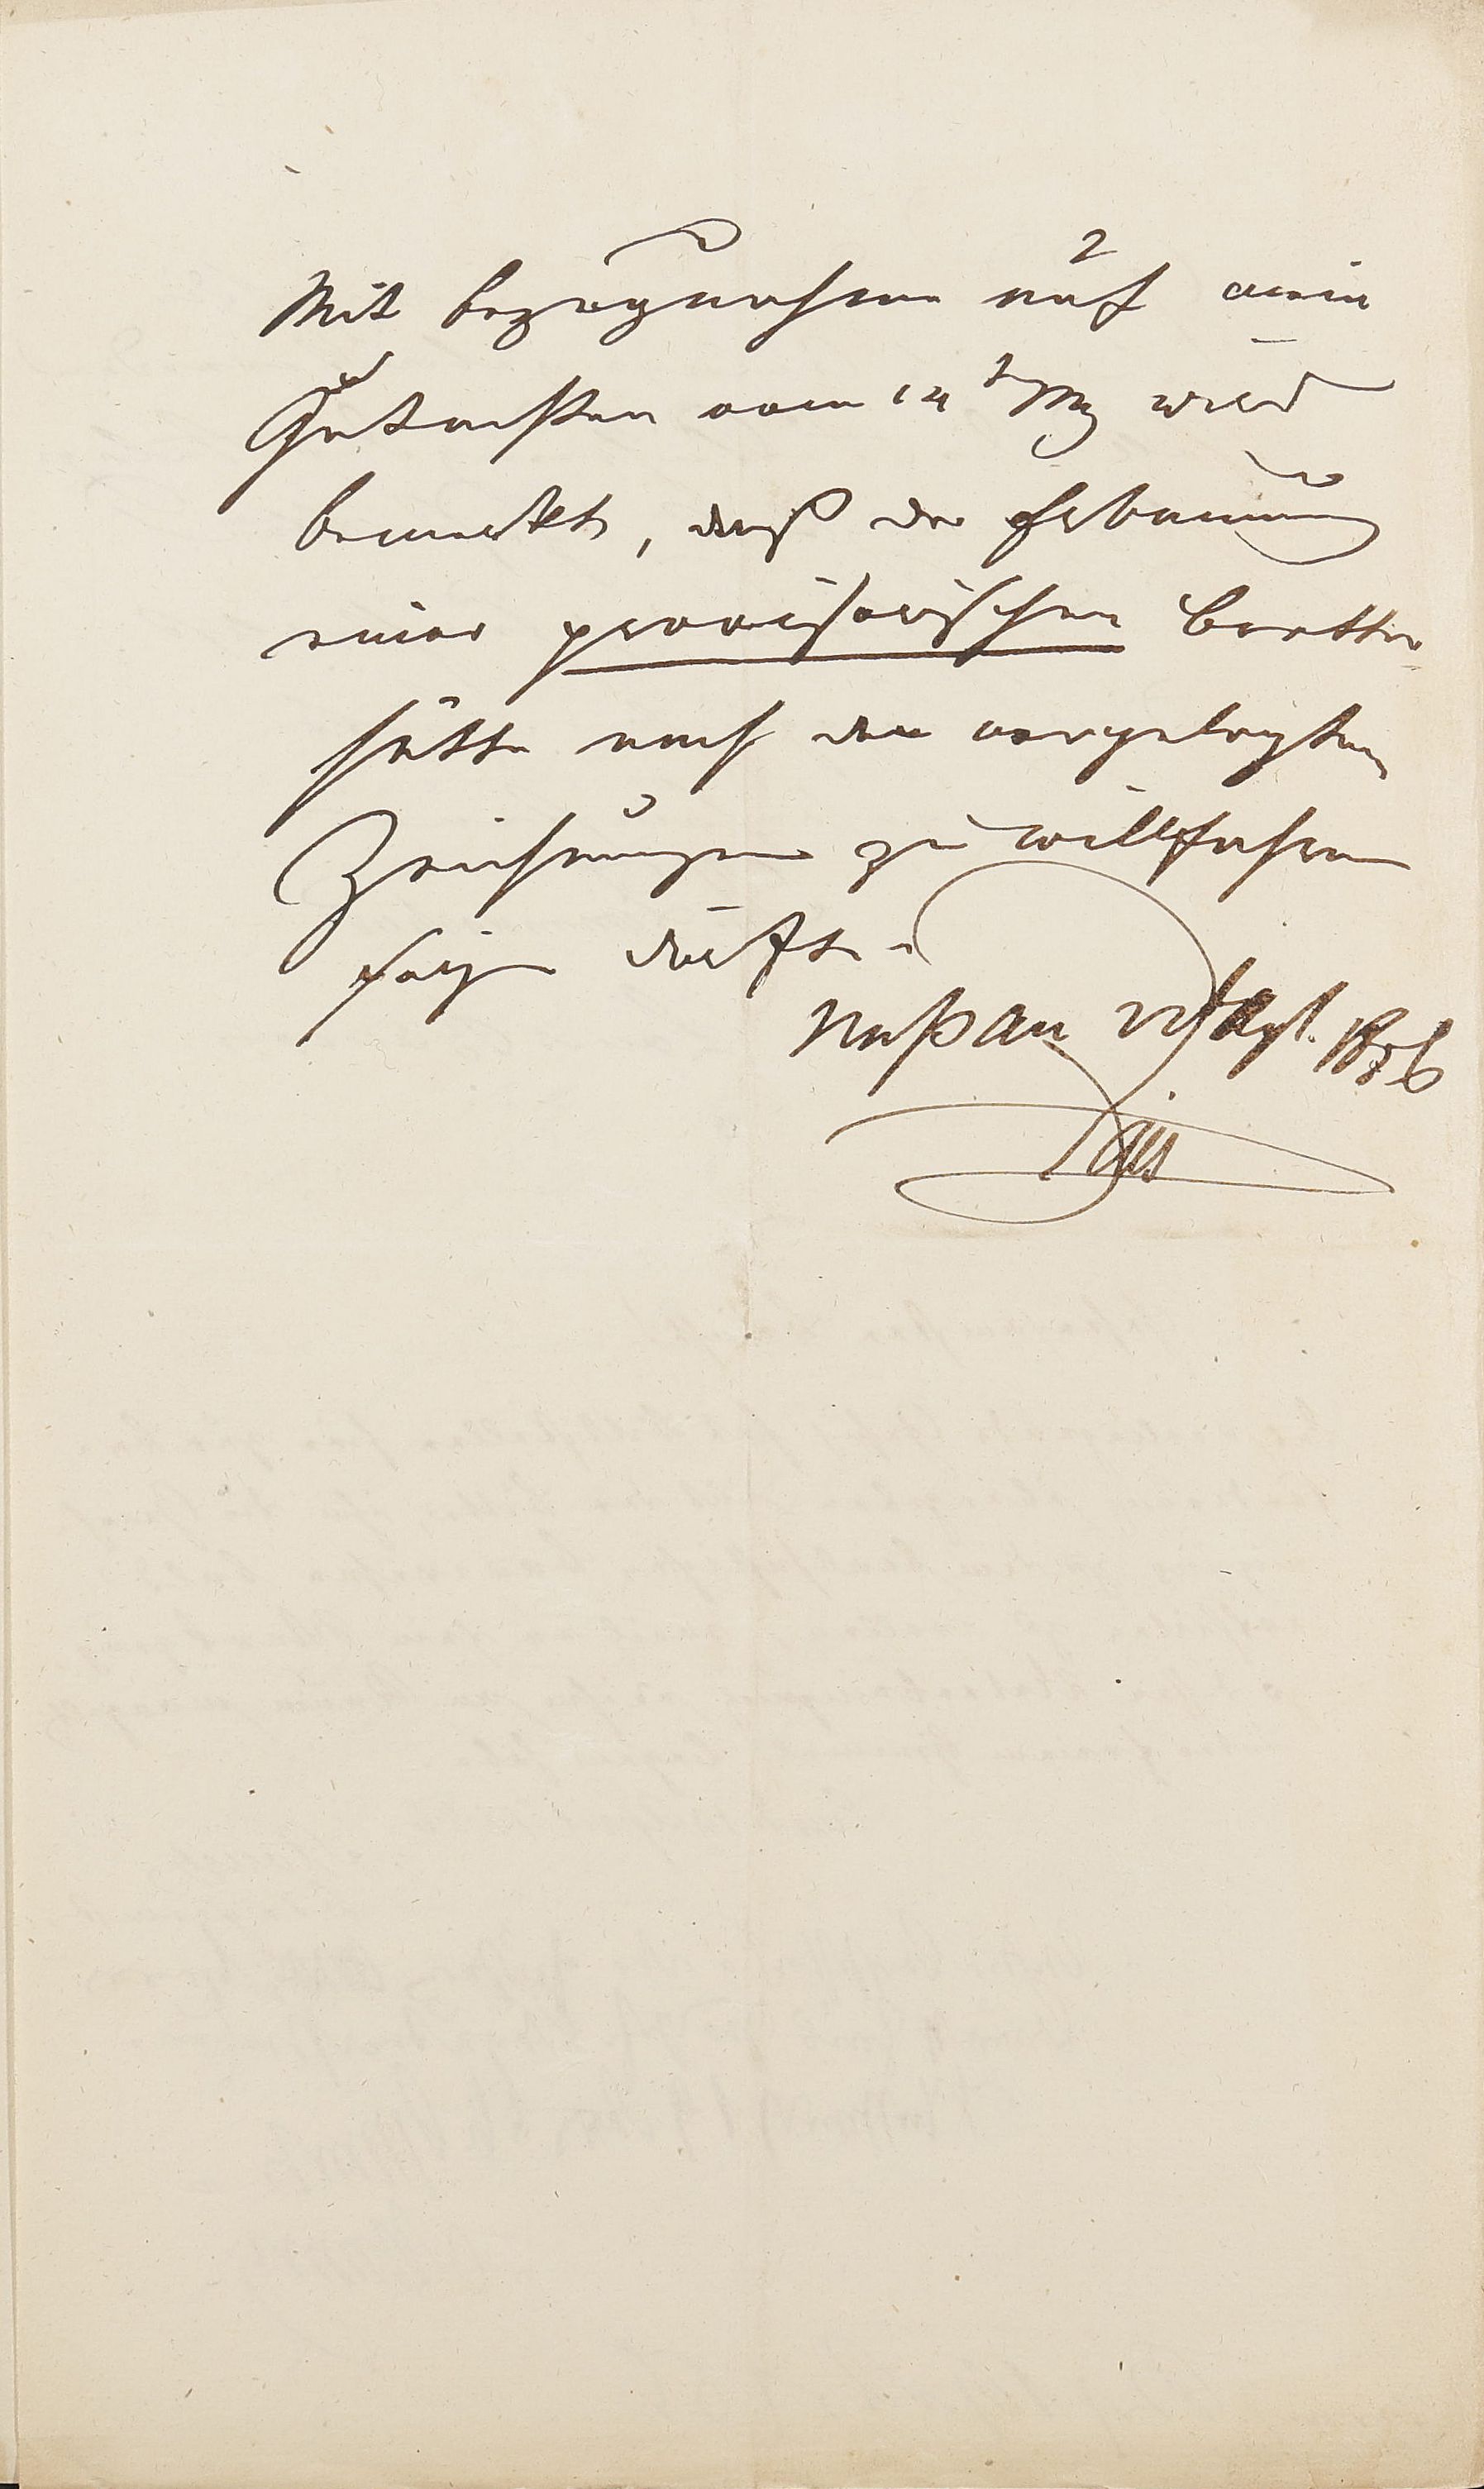 Mit Bezugnahme auf mein
Gutachten vom 14t
wird
bemerkt, daß der Erbauung
einer provisorischen Bretter
hütte nach den vorgelegten
Zeichnungen zu willfahren
seyn dürfte.
Naßau 1856